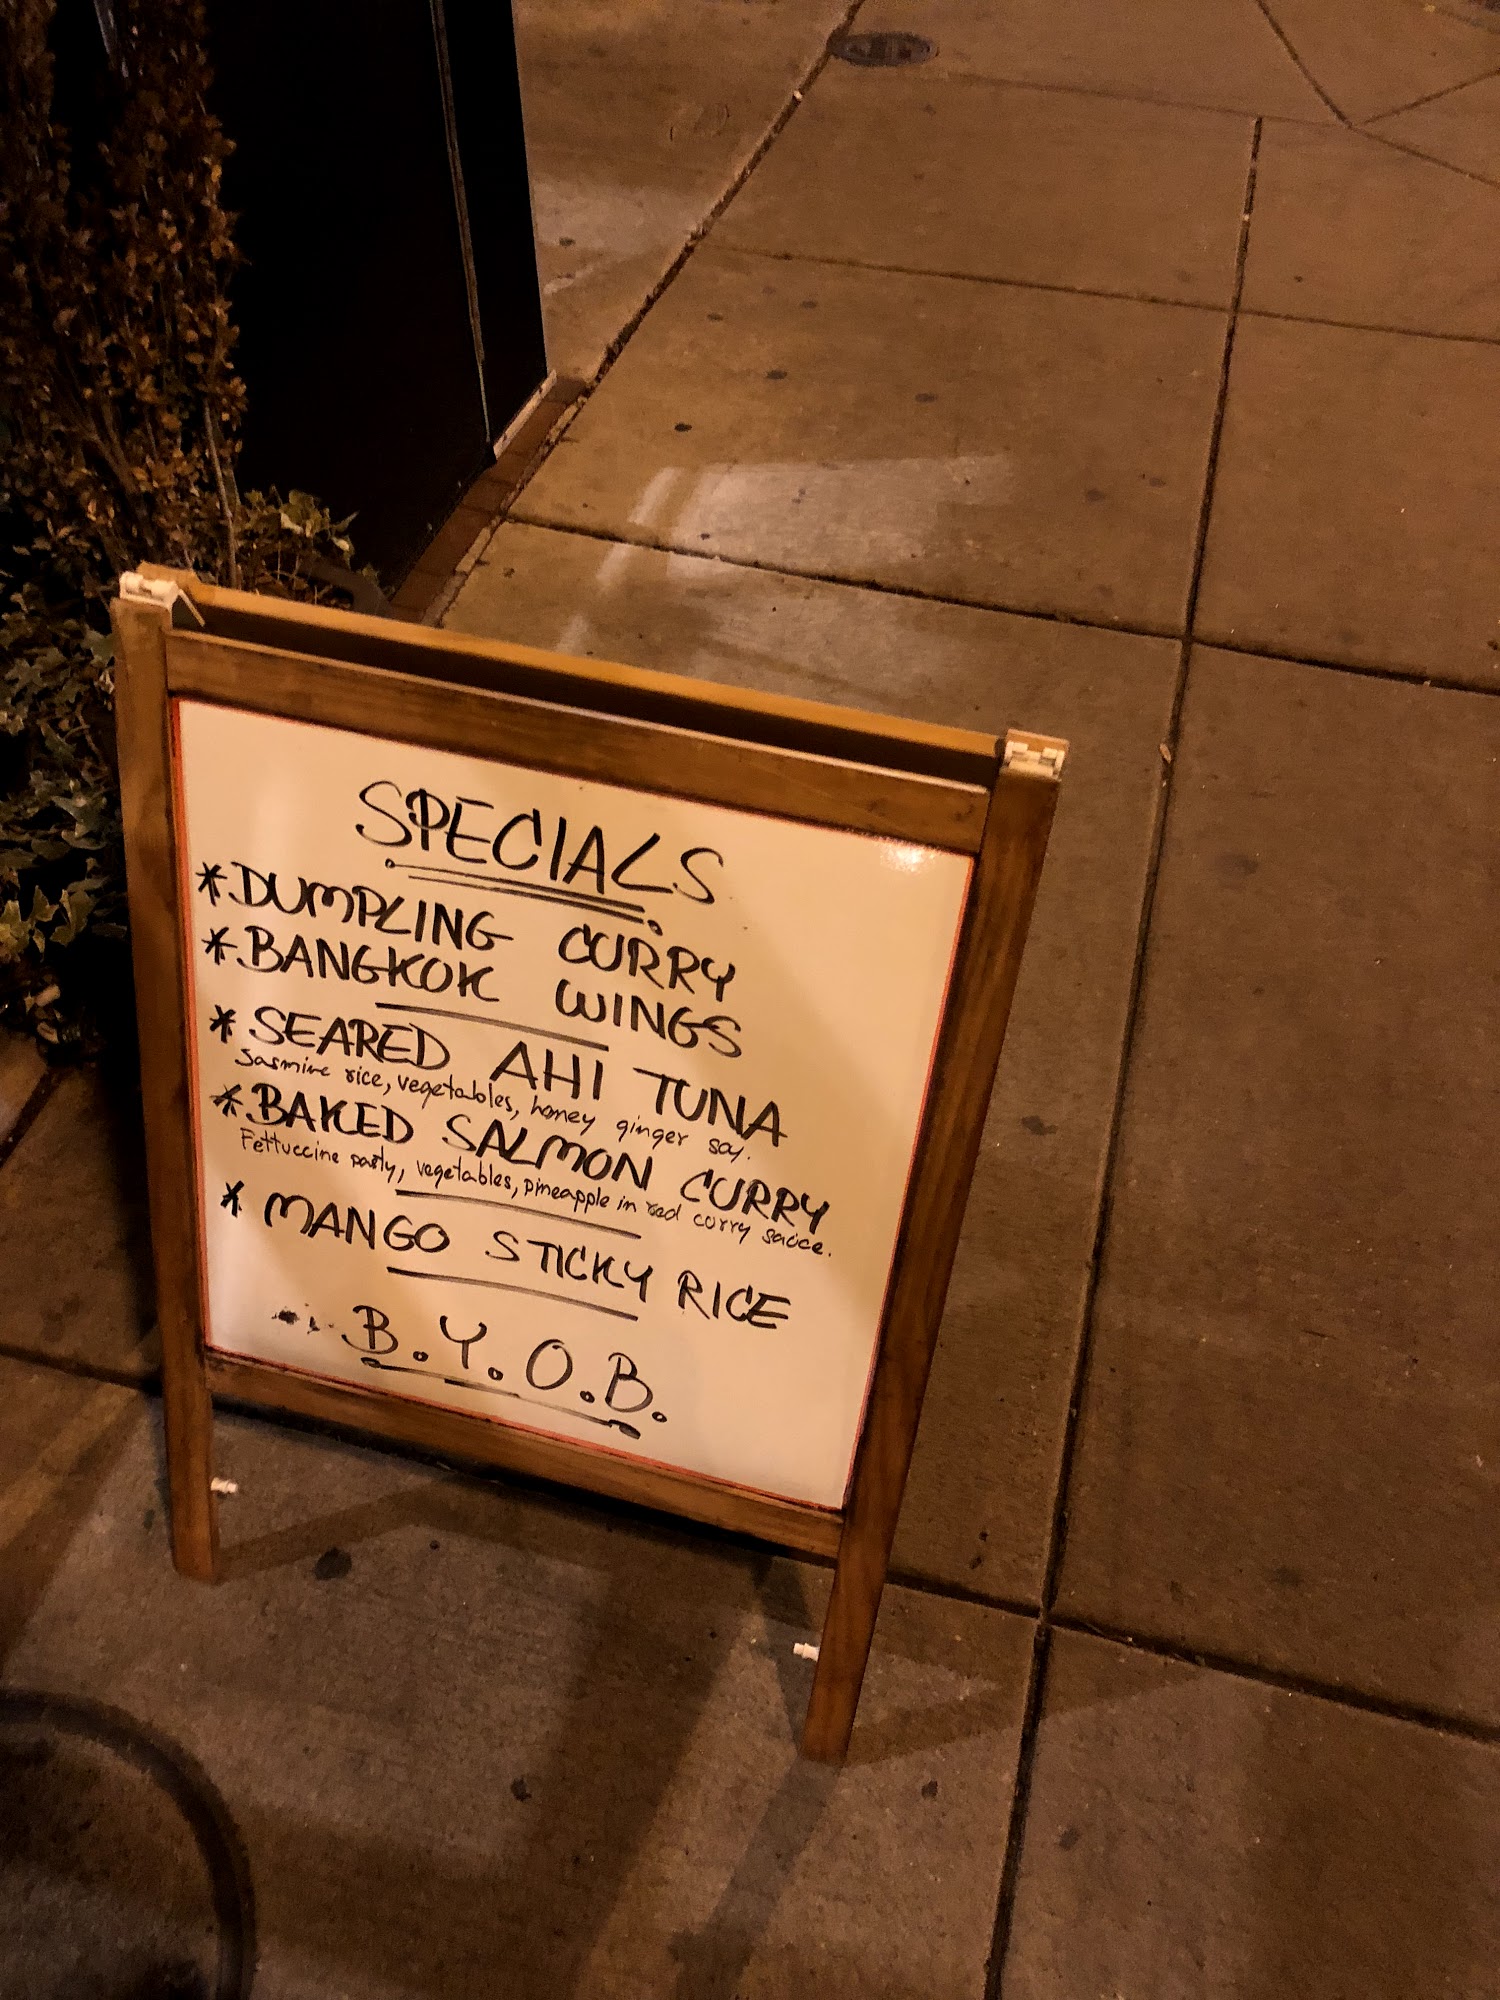 SPECIALS
*DUMPLING CURRY
*BANGKOK WINGS
*SEARED AHI TUNA
Jasmine rice, vegetables, honey ginger soy.
*BAKED SALMON CURRY
Fettuccine pasty, vegetables, pineapple in red curry sauce.
* MANGO STICKY RICE
B.Y.O.B.